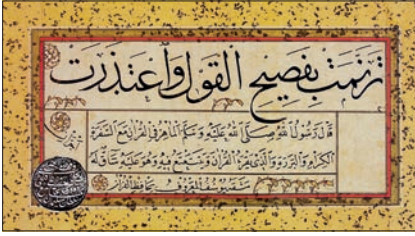 ترنمت بفصيح القول واعتذرت
قال رسول الله صلى الله عليه وسلم الماهر في القرآن مع السفرة
الكرام والبررة والذي يقرأ القرآن ويتتعتع فيه وهو عليه شاق له
يوسف المعروف بحافظ القرآن